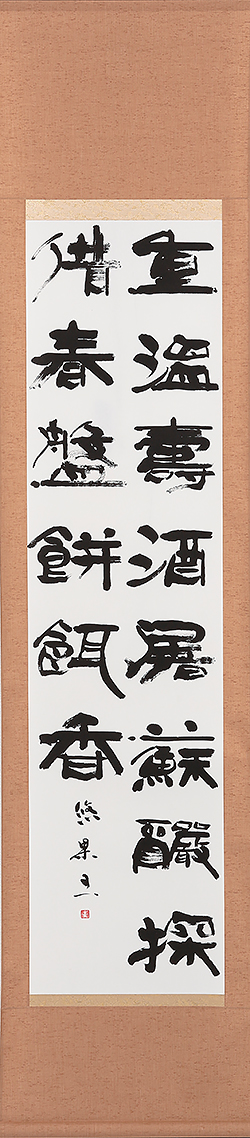 重溫壽酒屠蘇釅探
借春盤餅餌香
悠果